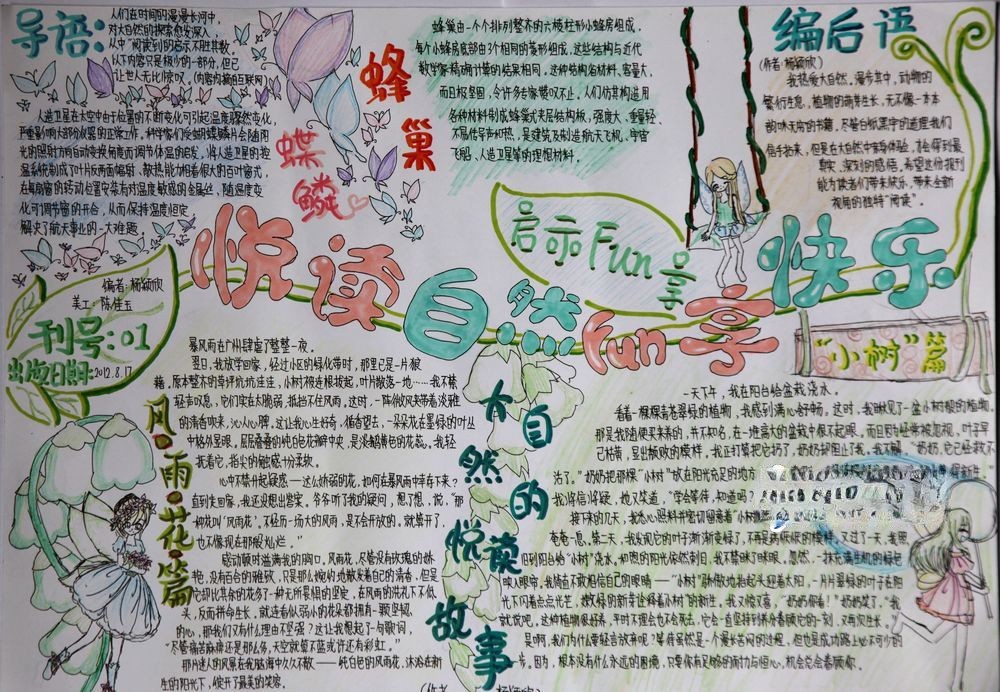 导语:
人们在时间的漫漫长河中,
对大自然的探索愈发深入,
从中“阅读”到的启示不胜其数。
以下内容只是极少的一部分,但已
让世人无比惊叹。(内容均摘自互联网)
人造卫星在太空中由于位置的不断变化可引起温度骤然变化,
严重影响大部分仪器的正常工作。科学家们受蝴蝶鳞片会随阳
光的照射方向自动变换角度而调节体温的启发,将人造卫星的控
温系统制成了叶片反两面辐射、散热能力相差很大的百叶窗式,
在每扇窗的转动位置安装有对温度敏感的金属丝,随温度变
化可调节窗的开合,从而保持温度恒定,
解决了航天事业的一大难题。
蝶鳞
蜂巢
蜂巢由一个个排列整齐的六棱柱形小蜂房组成,
每个小蜂房底部由3个相同的菱形组成,这些结构与近代
数学家精确计算的结果相同。这种结构省材料,容量大,
而且极坚固,令许多专家赞叹不止。人们仿其构造用
各种材料制成蜂巢式夹层结构板,强度大、重量轻
不易传导声和热,是建筑及制造航天飞机、宇宙
飞船、人造卫星等的理想材料。
启示Fun享
编后语
(作者:杨颖欣)
我热爱大自然。漫步其中,动物的
繁衍生息,植物的萌芽生长,无不像一本本
韵味无穷的书籍。尽管白纸黑字的道理我们
信手拈来,但是在大自然中亲身体验,才会得到最
真实、深刻的感悟。希望这份报刊
能为读者们带来快乐,带来全新
视角的独特“阅读”。
悦读自然fun享快乐
编者:杨颖欣
美工:陈佳玉
刊号:01
出版日期:2012.8.17
风·雨·花·篇
暴风雨在广州肆虐了整整一夜。
翌日,我放学回家,经过小区的绿化带时,那里已是一片狼
藉,原本整齐的草坪坑坑洼洼,小树棵连根拔起,叶片散落一地……我不禁
轻声叹息,它们实在太脆弱,抵挡不住风雨。这时,一阵微风夹带着淡雅
的清香吹来,沁人心脾。这让我心生好奇,循香望去,一朵朵花在墨绿的叶丛
中格外显眼,层层叠叠的纯白色花瓣中央,是淡鹅黄色的花蕊。我轻
抚着它,指尖的触感十分柔软。
心中不禁升起疑惑——这么娇弱的花,如何在暴风雨中幸存下来?
直到回家,我还没想出答案。爷爷听了我的疑问,想了想,说,“那
种花叫‘风雨花’,不经历一场大的风雨,是不会开放的。就算开了,
也不像现在那般灿烂。”
感动顿时溢满我的胸口。风雨花,尽管没有玫瑰的娇
艳,没有百合的雅致,只是那么婉约地散发着自己的清香。但是
它却比其余的花多了一种无所畏惧的坚定,在风雨的洗礼下不低
头,反而拼命生长。就连看似弱小的花朵都拥有一颗坚韧
的心,那我们又有什么理由不坚强?这让我想起了一句歌词,
“尽管痛苦麻痹还是那么多,天空就算不蓝或许还有彩虹。”
那片迷人的风景在我脑海中久久不散——纯白色的风雨花,沐浴在新
生的阳光下,绽开了最美的笑容。
大自然的悦读故事
“小树”篇
一天下午,我在阳台给盆栽浇水。
看着一棵棵苍翠绿的植物,我感到满心舒畅。这时,我瞅见了一盆小树模的植物,
那是我随便买来养的,并不知名,在一堆高大的盆栽中很不起眼。而且因经常被忽视,叶子早
已枯黄,显出颓败的模样。我正打算把它扔了,奶奶却阻止了我。我不解,“奶奶,它已经救不
活了。”奶奶把那棵“小树”放在阳光充足的地方
我将信将疑,她又笑道,“学会等待,知道吗?”
接下来的几天,我悉心照料并密切留意着“小树
奄奄一息,第二天,我发现它的叶子渐渐变绿了,不再是病恹恹的模样。又过了一天,我照
旧到阳台给“小树”浇水。和煦的阳光依然刺目,我不禁眯了眯眼。忽然,一抹充满生机的绿色
映入眼帘,我简直不敢相信自己的眼睛——“小树”骄傲地抬起头迎着太阳,一片片翠绿的叶子在阳
光下闪着点点光芒,嫩绿的新芽诠释着“小树”的新生。我又惊又喜,“奶奶你看!”奶奶笑了,“我
就说吧,这种植物很好养,平时不理会也不会死去,它会一直坚持到养分春顾它的一刻,又再次生长。”
是啊,我们为什么要轻言放弃呢?等待虽然是一个漫长苦闷的过程,但也是成功路上必不可少的
一步。因为,根本没有什么永远的困境,只要你有足够的耐力与恒心,机会总会眷顾你。